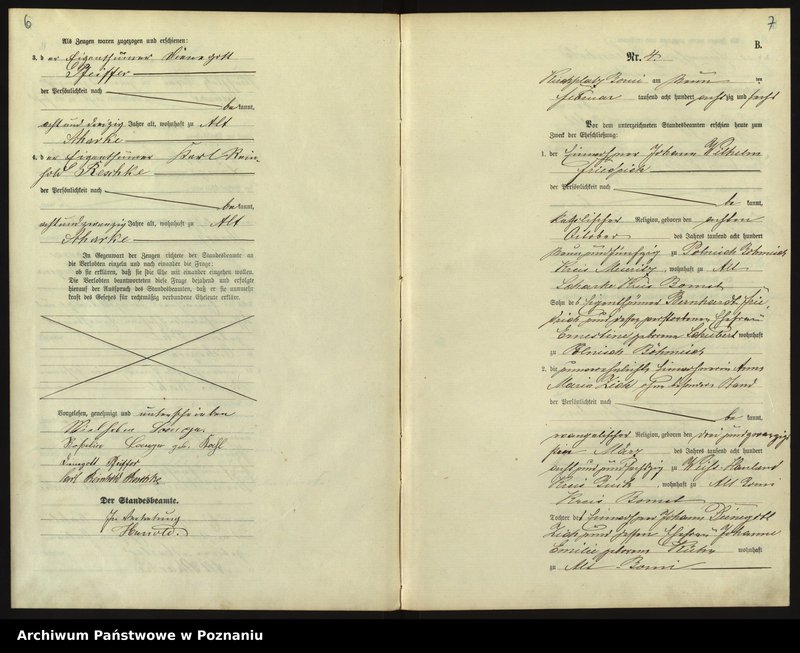 6
Als Zeugen waren zugezogen und erschienen:
3. der Eigenthümer Dienegott
Pfeiffer
der Persönlichkeit nach
bekannt,
acht und dreizig Jahre alt, wohnhaft zu Alt
Jharke
4. der Eigenthümer Karl Rein-
hold Reschke
der Persönlichkeit nach
bekannt,
acht und zwanzig Jahre alt, wohnhaft zu Alt
Jharke
In Gegenwart der Zeugen richtete der Standesbeamte an
die Verlobten einzeln und nach einander die Frage:
ob sie erklären, daß sie die Ehe mit einander eingehen wollen.
Die Verlobten beantworteten diese Frage bejahend und erfolgte
hierauf der Ausspruch des Standesbeamten, daß er sie nunmehr
kraft des Gesetzes für rechtmäßig verbundene Eheleute erkläre.
Vorgelesen, genehmigt und unterschrieben
Wilhelm
geb.
Pfeiffer
Karl Reinhold Reschke
Der Standesbeamte.
In Vertretung
7
B.
Nr. 4.
Kirchplatz Bomi am neun ten
Februar tausend acht hundert achtzig und sechs
Vor dem unterzeichneten Standesbeamten erschien heute zum
Zweck der Eheschließung:
1. der Einwohner Johann Wilhelm
Friedrich
der Persönlichkeit nach
be kannt,
katholischer Religion, geboren den achten
October des Jahres tausend acht hundert
neun und fünfzig zu Polnisch Böhmisch
Kreis Meseritz, wohnhaft zu Alt
Jharke Kreis Bomst
Sohn des Eigenthümer Bernhardt Frie-
drich und dessen verstorbenen Ehefrau
Ernestine geborene Schubert wohnhaft
zu Polnisch Böhmisch
2. die unverehelichte Einwohnerin Anna
Maria Zick ohne besonderen Stand
der Persönlichkeit nach
be kannt,
evangelischer Religion, geboren den drei und zwanzig
sten März des Jahres tausend acht hundert
acht und sechzig zu Hauland
Kreis, wohnhaft zu Alt Bomi
Kreis Bomst
Tochter des Einwohner Johann Dienegott
Zick und dessen Ehefrau Johanne
Emilie geborene wohnhaft
zu Alt Bomi
Archiwum Państwowe w Poznaniu